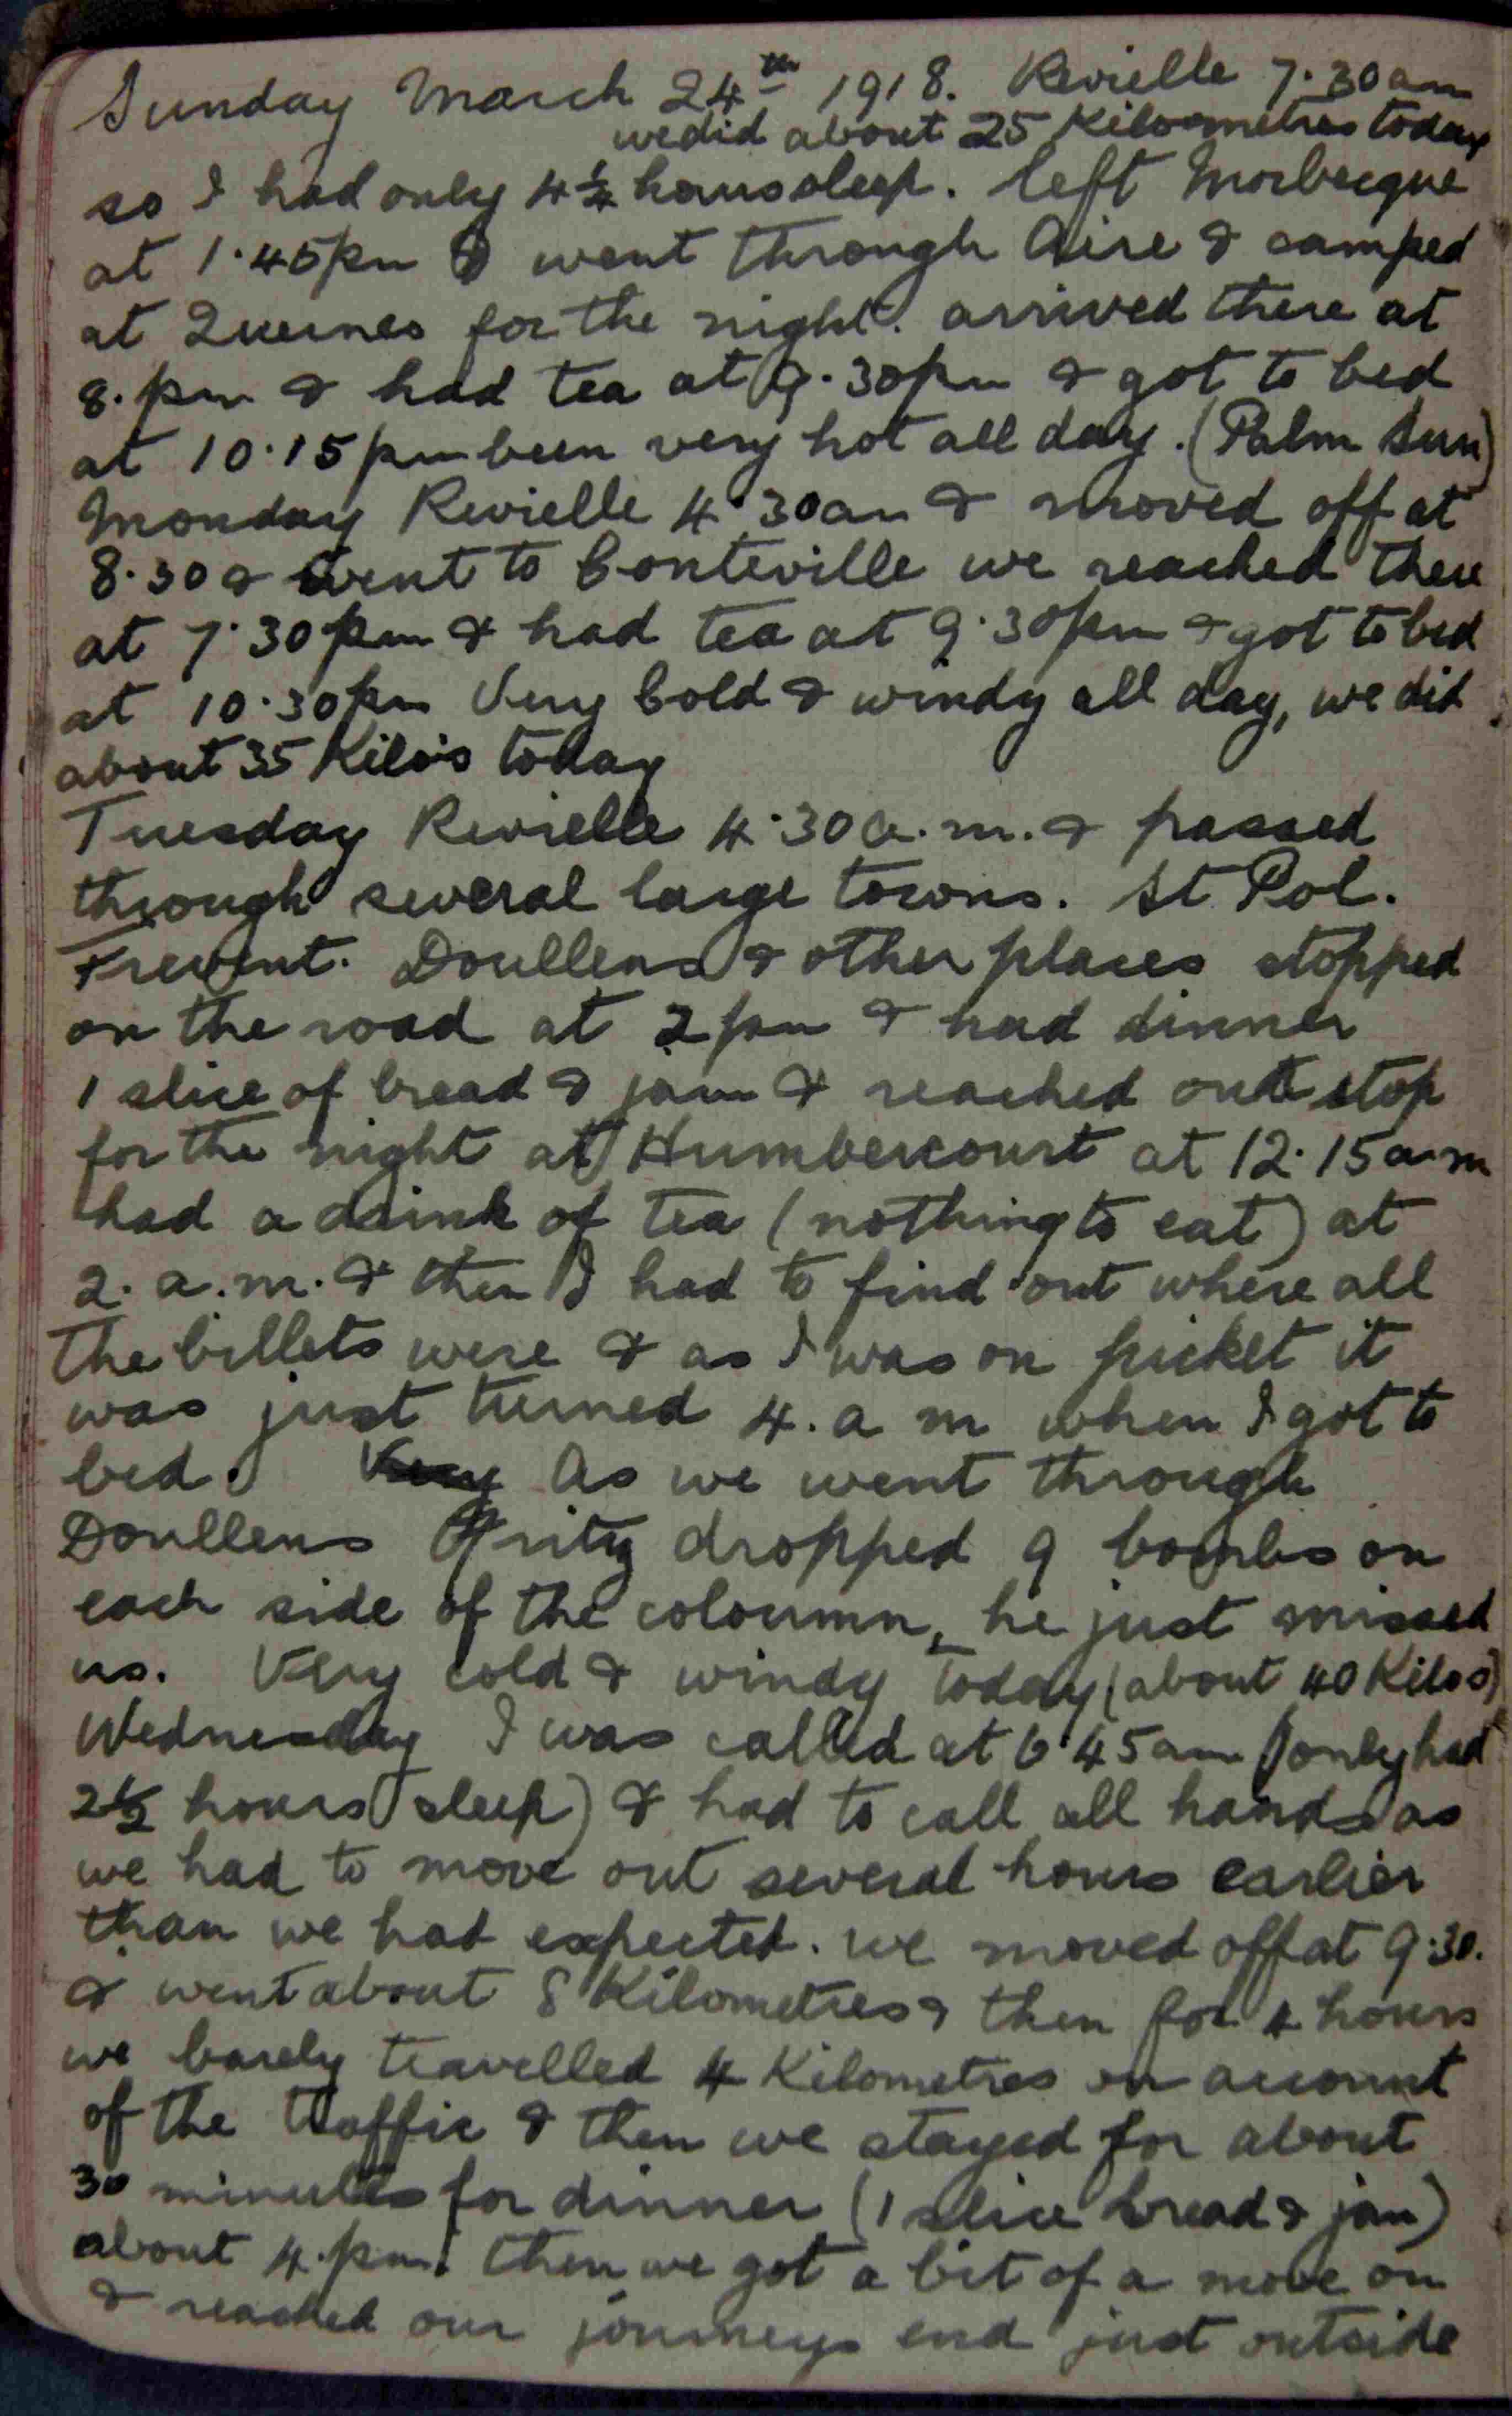 Sunday March 24th 1918. Revielle 7.30am
we did about 25 Kiloometres today
so I had only 4½ hours sleep. left Morbecque
at 1.45pm & went through Aire & camped
at Quernes for the night. arrived there at
8.pm & had tea at 9.30pm & got to bed
at 10.15pm been very hot all day. (Palm Sun)
Monday Revielle 4.30am & moved off at
8.30 & went to Conteville we reached there
at 7.30pm & had tea at 9.30pm & got to bed
at 10.30pm Very Cold & windy all day, we did
about 35 Kilo's today
Tuesday Revielle 4.30 a.m. & passed
through several large towns. St Pol.
Frevent. Doullens & other places stopped
on the road at 2pm & had dinner
1 slice of bread & jam & reached our stop
for the night at Humbercourt at 12.15am
had a drink of tea (nothing to eat) at
2.a.m. & then I had to find out where all
the billets were & as I was on picket it
was just turned 4.a m when I got to
bed. Very As we went through
Doullens Fritz dropped 9 bombs on
each side of the coloumn, he just missed
us. Very cold & windy today (about 40 Kilos)
Wednesday I was called at 6.45am (only had
2½ hours sleep) & had to call all hands as
we had to move out several hours earlier
than we had expected. we moved off at 9.30.
& went about 8 Kilometres & then for 4 hours
we barely travelled 4 Kilometres on account
of the traffic & then we stayed for about
30 minutes for dinner (1 slice bread & jam)
about 4.pm. then we got a bit of a move on
& reached our journeys end just outside